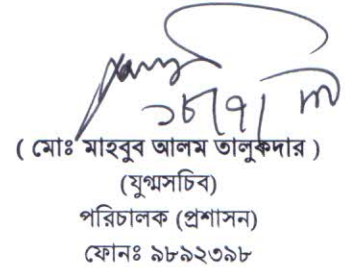 ( মোঃ মাহবুব আলম তালুকদার )
(যুগ্মসচিব)
পরিচালক (প্রশাসন)
ফোনঃ ৯৮৯২৩৯৮